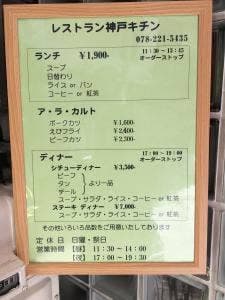 レストラン神戸キチン
078-221-5435
ランチ ¥1,900- 11:30〜13:45
オーダーストップ
スープ
日替わり
ライス or パン
コーヒー or 紅茶
ア・ラ・カルト
ポークカツ ¥1,600-
えびフライ ¥2,400-
ビーフカツ ¥2,300-
ディナー 17:00〜19:00
オーダーストップ
シチューディナー ¥3,500-
ビーフ
タン より一品
テール
スープ・サラダ・ライス・コーヒー or 紅茶
ステーキ ディナー ¥7,000-
スープ・サラダ・ライス・コーヒー or 紅茶
その他いろいろ品数をご用意いたしております
定休日 日曜・祭日
営業時間 【昼】 11:30〜14:00
【夜】 17:00〜19:30